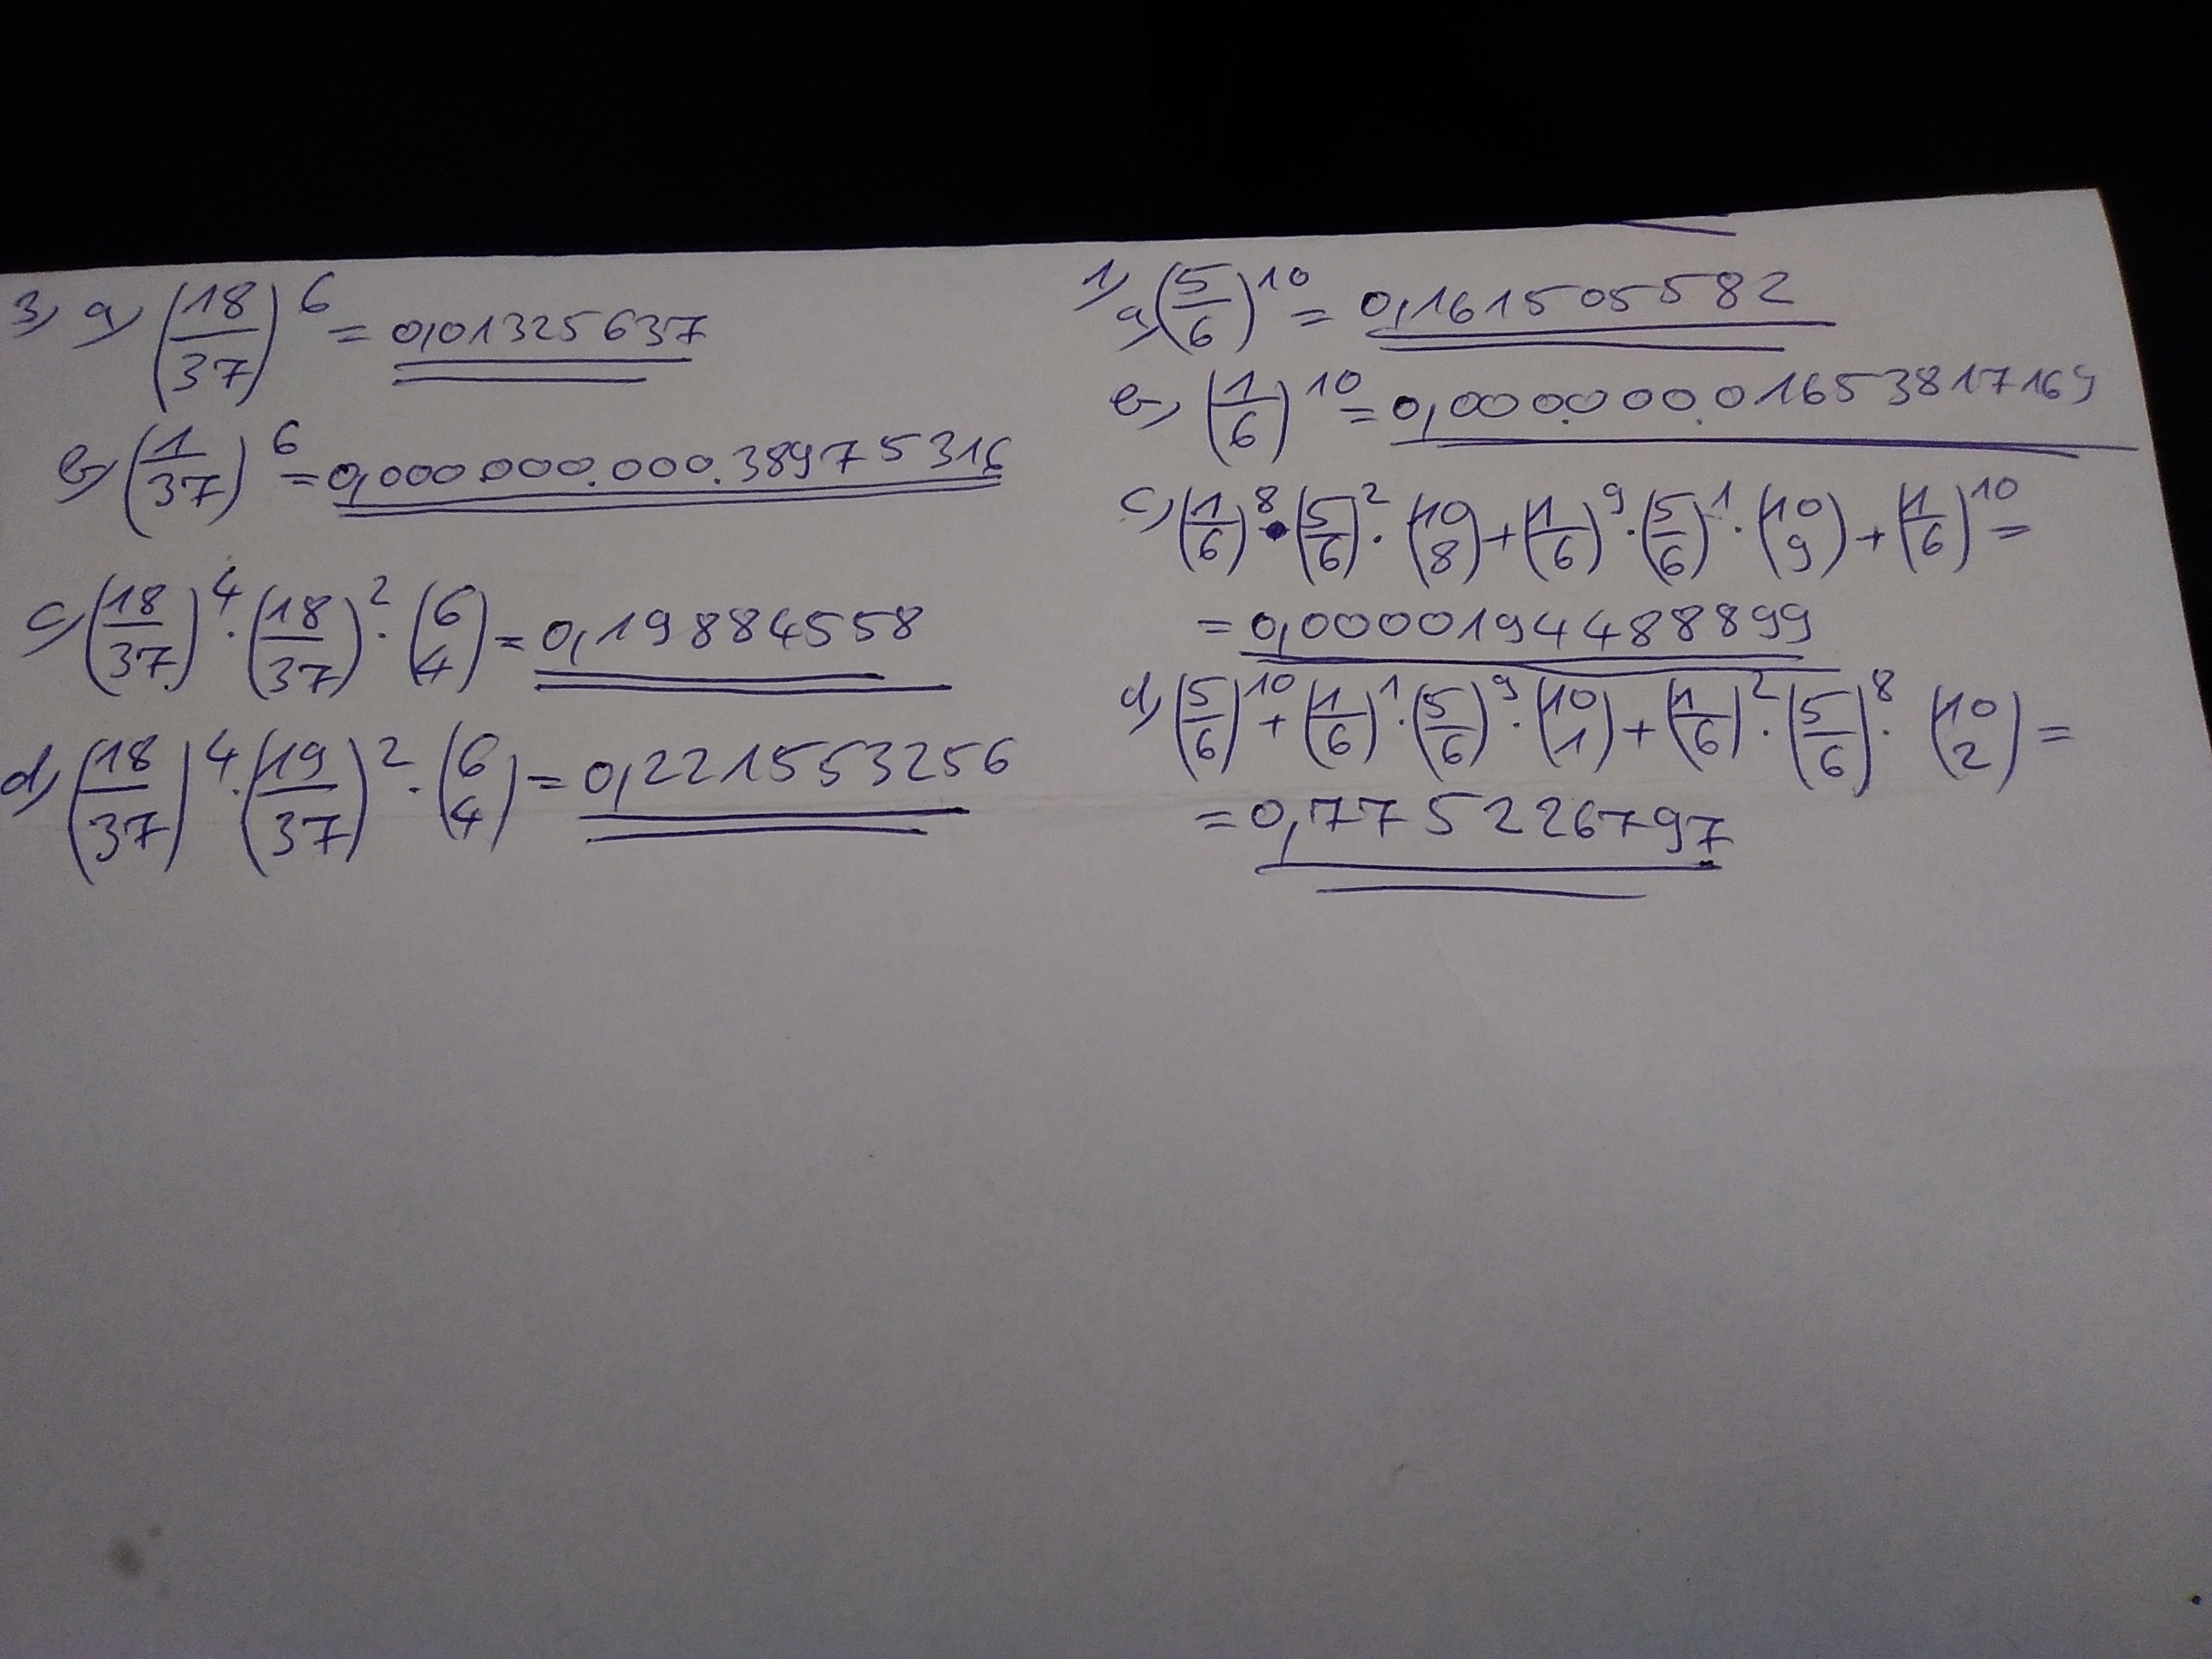 3) a) (18/37)^6 = 0,01325637
b) (1/37)^6 = 0,000.000.000.38975316
c) (18/37)^4 · (18/37)^2 · (6 4) = 0,19884558
d) (18/37)^4 · (19/37)^2 · (6 4) = 0,221553256
1) a) (5/6)^10 = 0,161505582
b) (1/6)^10 = 0,000.000.01653817169
c) (1/6)^8 · (5/6)^2 · (10 8) + (1/6)^9 · (5/6)^1 · (10 9) + (1/6)^10 =
= 0,0000194488899
d) (5/6)^10 + (1/6)^1 · (5/6)^9 · (10 1) + (1/6)^2 · (5/6)^8 · (10 2) =
= 0,7752226797